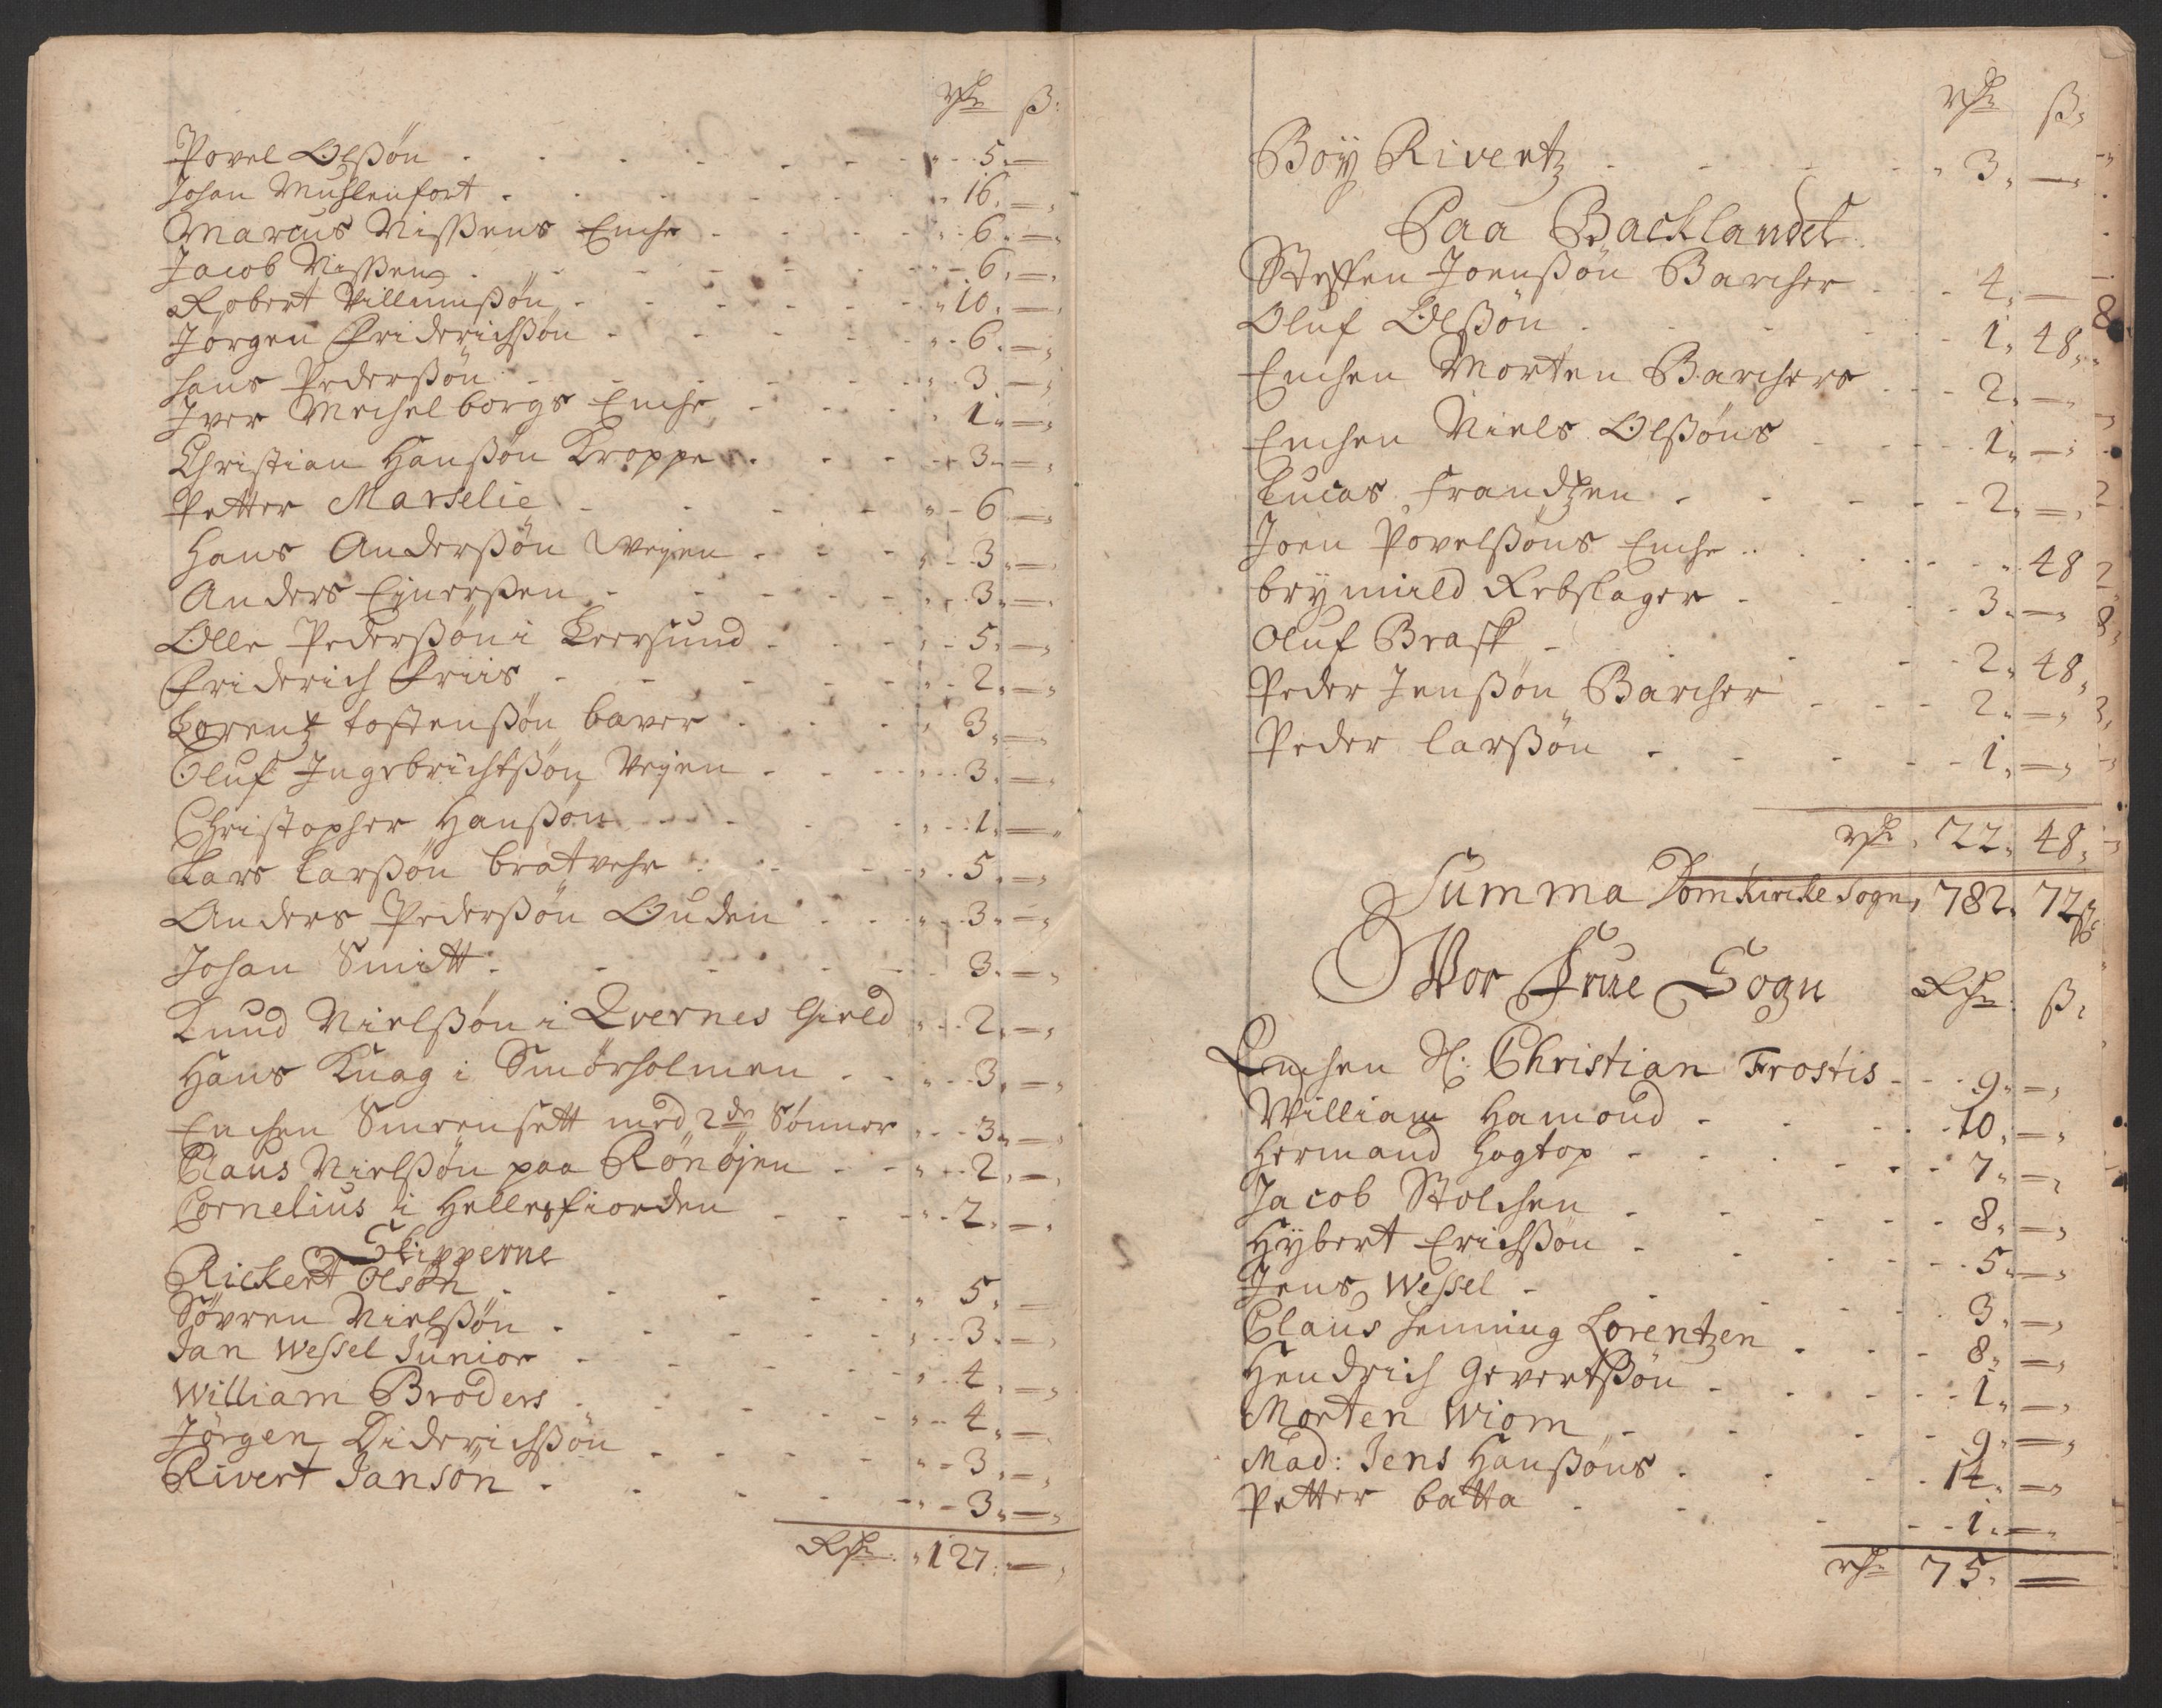 Rdr ß:
Povel Olßön - 5. —
Johan Muhlenfort - 16. —
Marcus Nißens Enche - 6. —
Jacob Nißen - 6. —
Robert Villumßön - 10. —
Jörgen Friderichßön - 6. —
Hans Pederßön - 3 —
Iver Mechelborgs Enche - 1. —
Christian Hanßön Kroppe - 3. —
Petter Marselie - 6. —
Hans Anderßön Vejen - 3. —
Anders Ejnerßen - 3. —
Olle Pederßön i Keersund - 5. —
Friderich Friis - 2. —
Lorentz tostenßön baver - 3. —
Oluf Ingebrichtßön Vejen - 3. —
Christopher Hanßön - 1. —
Lars Larßön bratvehr - 5. —
Anders Pederßön Ouden - 3. —
Johan Smitt - 3. —
Knud Nielßön i Qvernes Gield - 2. —
Hans Knag i Smörholmen - 3. —
Enchen Smeensett med 2de Sönner - 3. —
Claus Nielßön paa Rönöjen - 2. —
Cornelius i Hellesfiorden - 2. —
Skipperne
Rickert Olsön - 5. —
Sövren Nielßön - 3. —
Jan Wessel Junior - 4. —
William Broders - 4. —
Jörgen Diderichßön - 3. —
Rivert Jansön - 3. —
Rdr 127. —
Rdr ß:
Boÿ Rivertz - 3. —
Paa Backlandet
Steffen Joenßön Barcher - 4. —
Oluf Olßön - 1. 48.
Enchen Morten Barchers - 2. —
Enchen Niels Olßöns - 1. —
Lucas Frandtzen - 2. —
Joen Povelßöns Enche - 48
brynnild Rebslager - 3. —
Oluf Brask - 2. 48.
Peder Jenßön Barcher - 2. —
Peder Larßön - 1. —
Rdr 22. 48.
Summa Domkircke Sogn, 782. 72 ß
Wor Frue Sogn Rdr ß:
Enchen Sl: Christian Frostis - 9. —
William Hamond - 10. —
Hermand Hogtop - 7. —
Jacob Stolchen - 8. —
Hÿbert Erichßön - 5. —
Jens Wessel - 3. —
Claus Henning Lorentzen - 8. —
Hendrich Gevertßön - 1. —
Morten Wiom - 9. —
Mad: Jens Hanßöns - 14. —
Petter batta - 1. —
Rdr 75. —